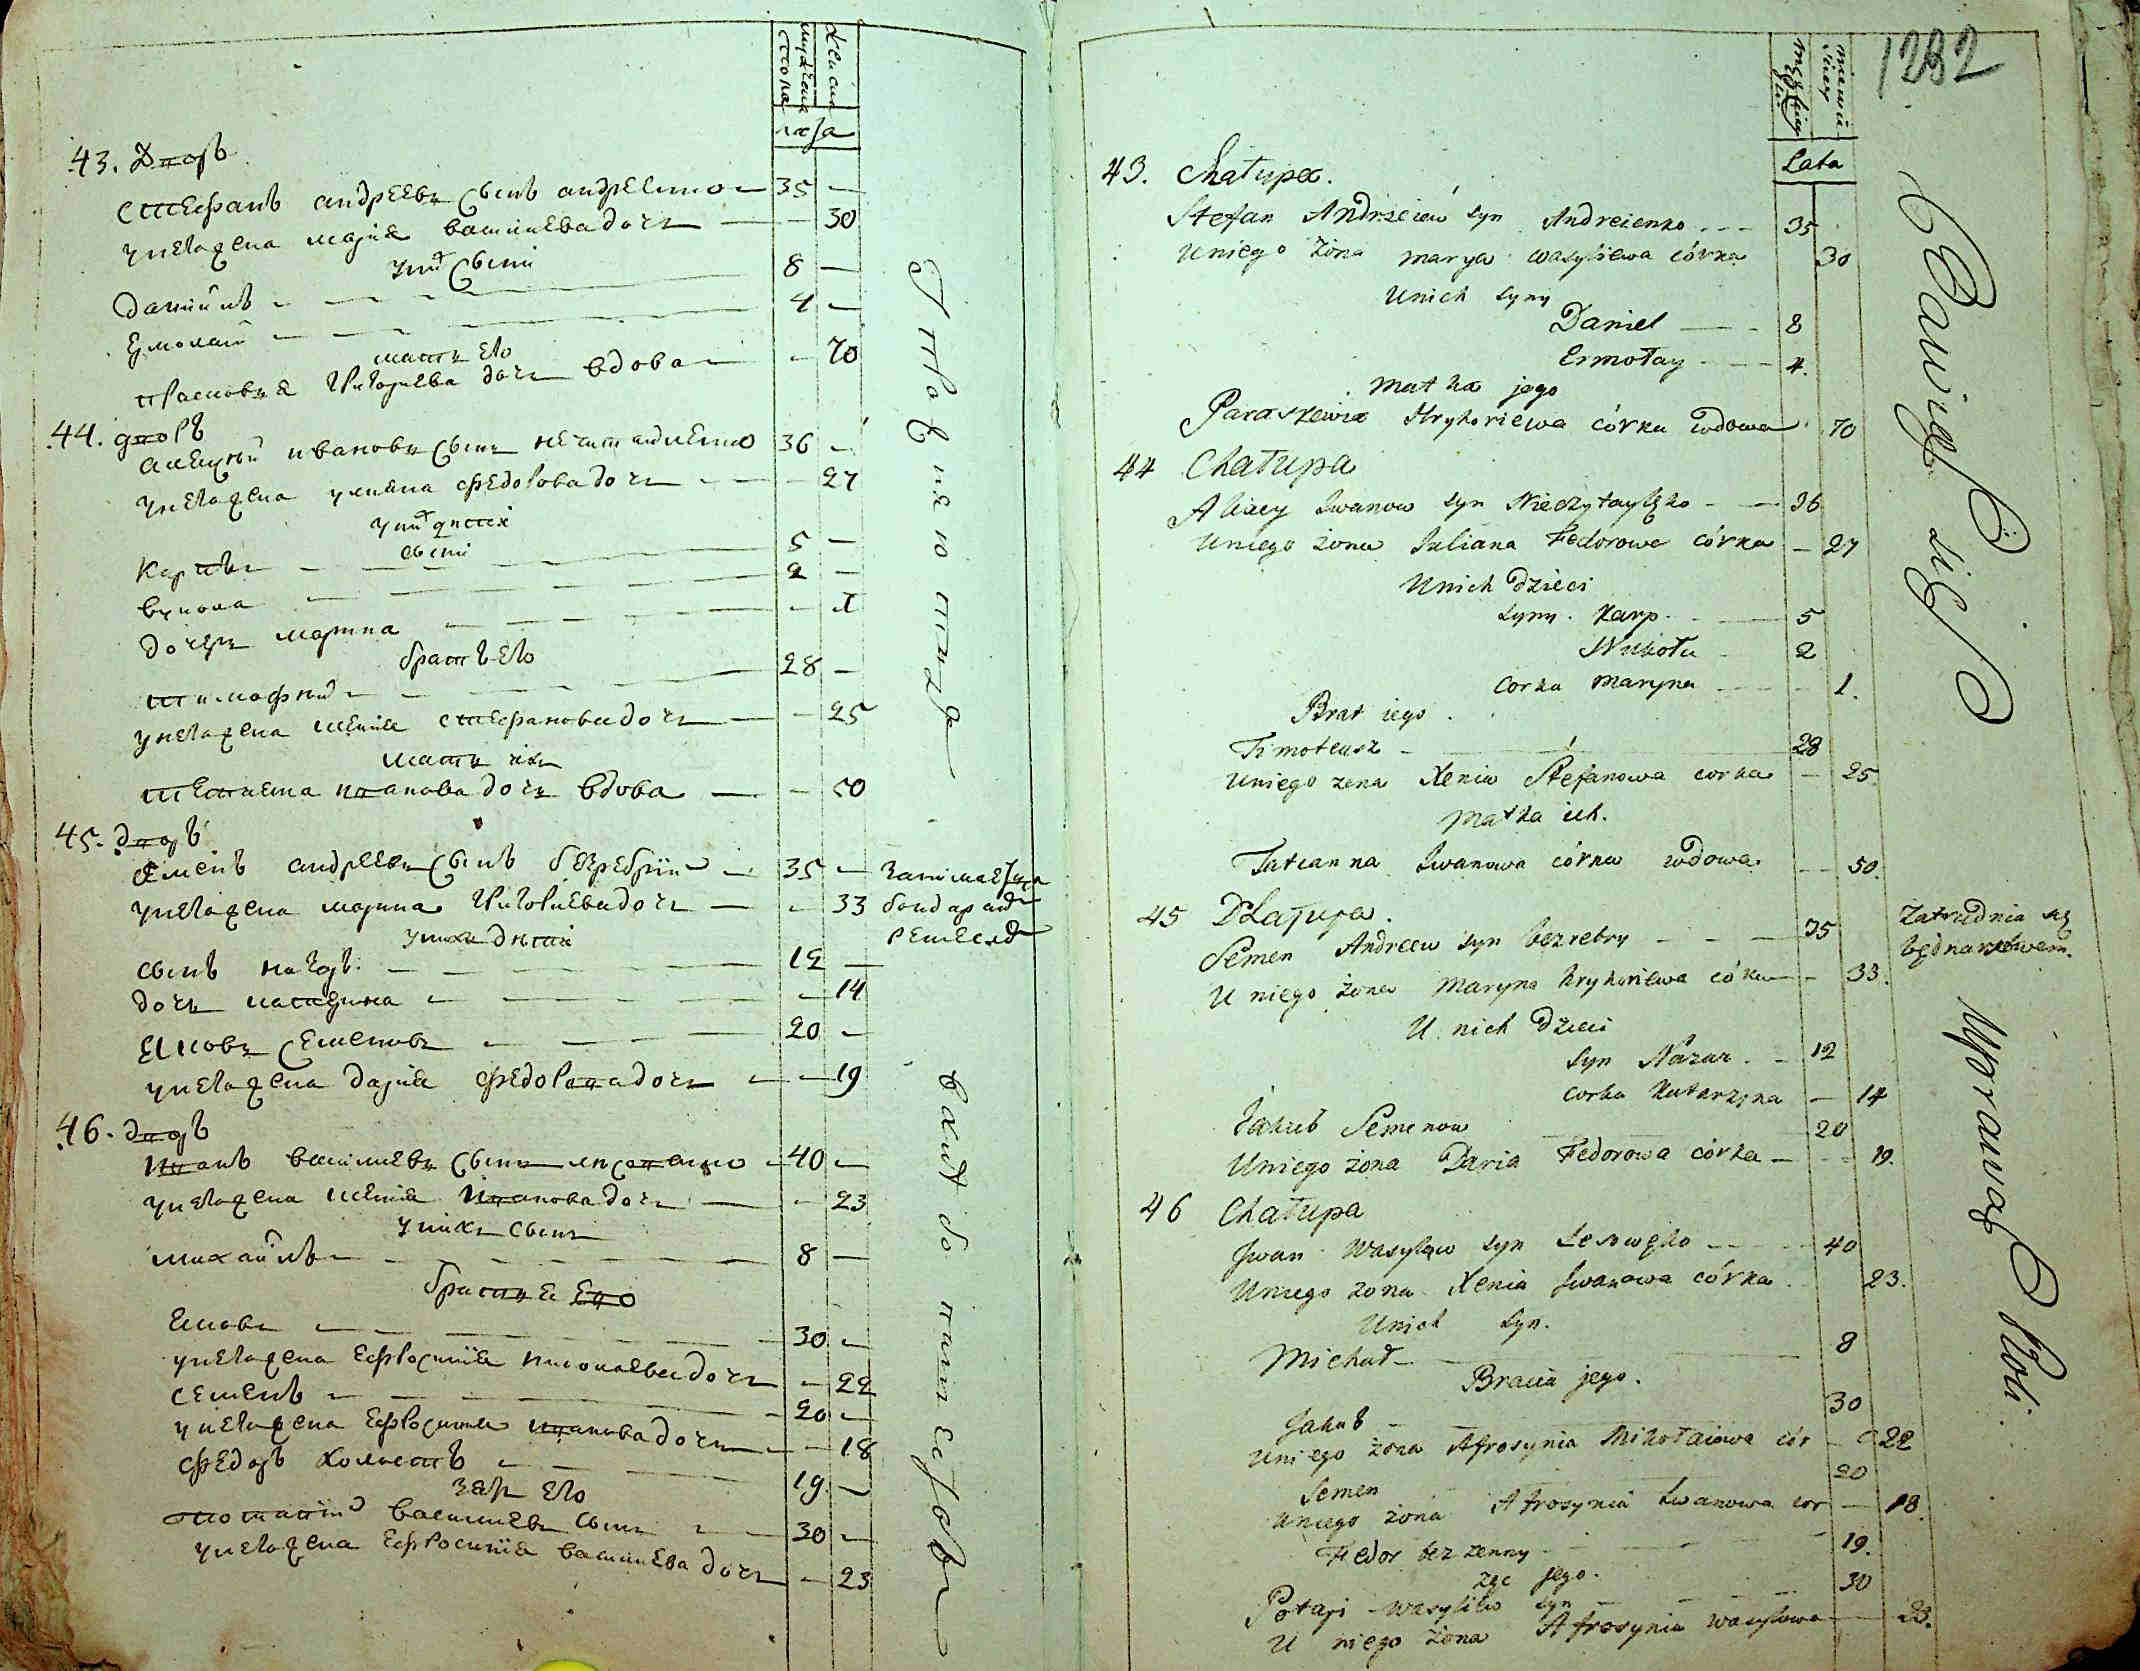 мужеска
пола
женска
лѣта
43. Дворъ
Стефанъ андреевъ сынъ андреенко 35
унего жена марія васильева дочь 30
уни сыни
данiилъ 8
ермолай 4
мать его
прасковѣя григорьева дочь вдова 70
44. дворъ
алексѣй ивановъ сынъ нечитайленко 36
унего жена улiяна федорова дочь 27
уни дети
сыни
карпъ 5
вукола 2
дочерь марина 1
братъ его
тимофѣй 28
унего жена ксенiя стефанова дочь 25
мать ихъ
татiана иванова дочь вдова 50
45. дворъ
семенъ андреевъ сынъ безребрiй 35
унего жена марина григориева дочь 33
занимается
бондарай
ремесло
унихъ дѣти
сынъ назаръ 12
дочь катерина 14
яковъ семеновъ 20
унего жена дарiя федорова дочь 19
46. дворъ
иванъ васильевъ сынъ 40
унего жена ксенiя иванова дочь 23
унихъ сынъ
михайлъ 8
братья его
яковъ 30
унего жена ефросинiя николаева дочь 22
семенъ 20
унего жена ефросинiя иванова дочь 18
федоръ холостъ 19
зять его
потапiй васильевъ сынъ 30
унего жена ефросинiя васильева дочь 23
1282
Lata
43. Chałupa.
Stefan Andrzeiew syn Andreienko 35
Uniego żona marya wasyliewa córka 30
Unich syny
Daniel 8
Ermołay 4.
Matka jego
Paraskewia Hryhoriewa córka wdowa 70
44 Chałupa
Alixey Iwanow syn Nieczytayłko 36
Uniego żona Juliana Fedorowa córka 27
Unich Dzieci
syny. Karp. 5
Wukoła 2
Corka maryna 1.
Brat iego
Timoteusz 28
Uniego żena Xenia Stefanowa corka 25
Matka ich.
Tatianna Iwanowa córka wdowa. 50.
45 Chałupa.
Semen Andreew syn bezrebry 35
U niego żona Maryna Hryhoriewa córka 33.
Zatrudnia się
będnarstwem.
U nich Dzieci
Syn Nazar. 12
Corka Katarzyna 14
Jakub Semenow 20
Uniego żona Daria Fedorowa córka 19.
46 Chałupa
Iwan Wasylew syn 40
Uniego żona Xenia Iwanowa córka. 23.
Unich Syn.
Michał 8
Bracia jego.
Jakub 30
Uniego żona Afrosynia Mikołaiowa cór 22
Semen 20
Uniego żona Afrosynia Iwanowa cor 18.
Fedor bez zenny 19.
zęć jego.
Potapi wasyliew syn 30
U niego żona Afrosynia Wasylowa 23.
Bawią się Uprawą Roli